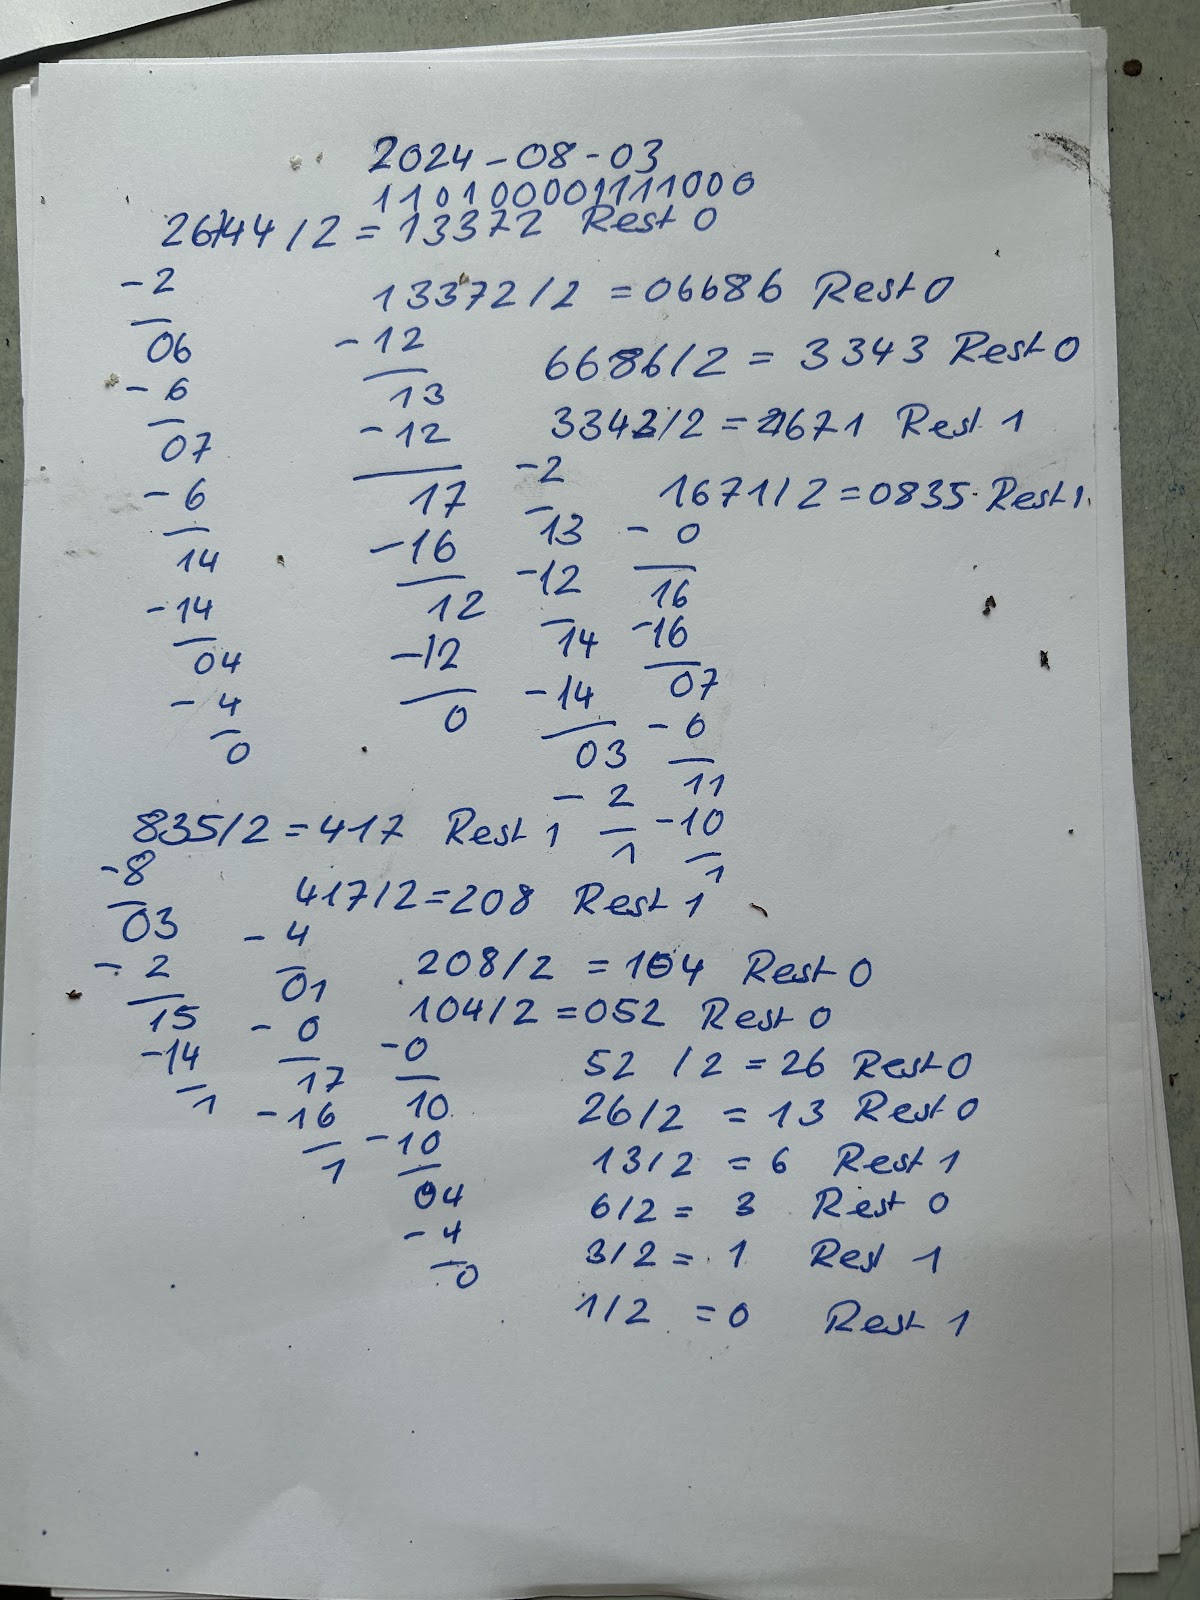 2024-08-03
110100001111000
26744/2 = 13372 Rest 0
-2
06
-6
07
-6
14
-14
04
-4
0
13372/2 = 06686 Rest 0
-12
13
-12
17
-16
12
-12
0
6686/2 = 3343 Rest 0
3343/2 = 1671 Rest 1
-2
13
-12
14
-14
03
-2
1
1671/2 = 0835 Rest 1
-0
16
-16
07
-6
11
-10
1
835/2 = 417 Rest 1
-8
03
-2
15
-14
1
417/2 = 208 Rest 1
-4
01
-0
17
-16
1
208/2 = 104 Rest 0
104/2 = 052 Rest 0
-0
10
-10
04
-4
0
52 /2 = 26 Rest 0
26/2 = 13 Rest 0
13/2 = 6 Rest 1
6/2 = 3 Rest 0
3/2 = 1 Rest 1
1/2 = 0 Rest 1